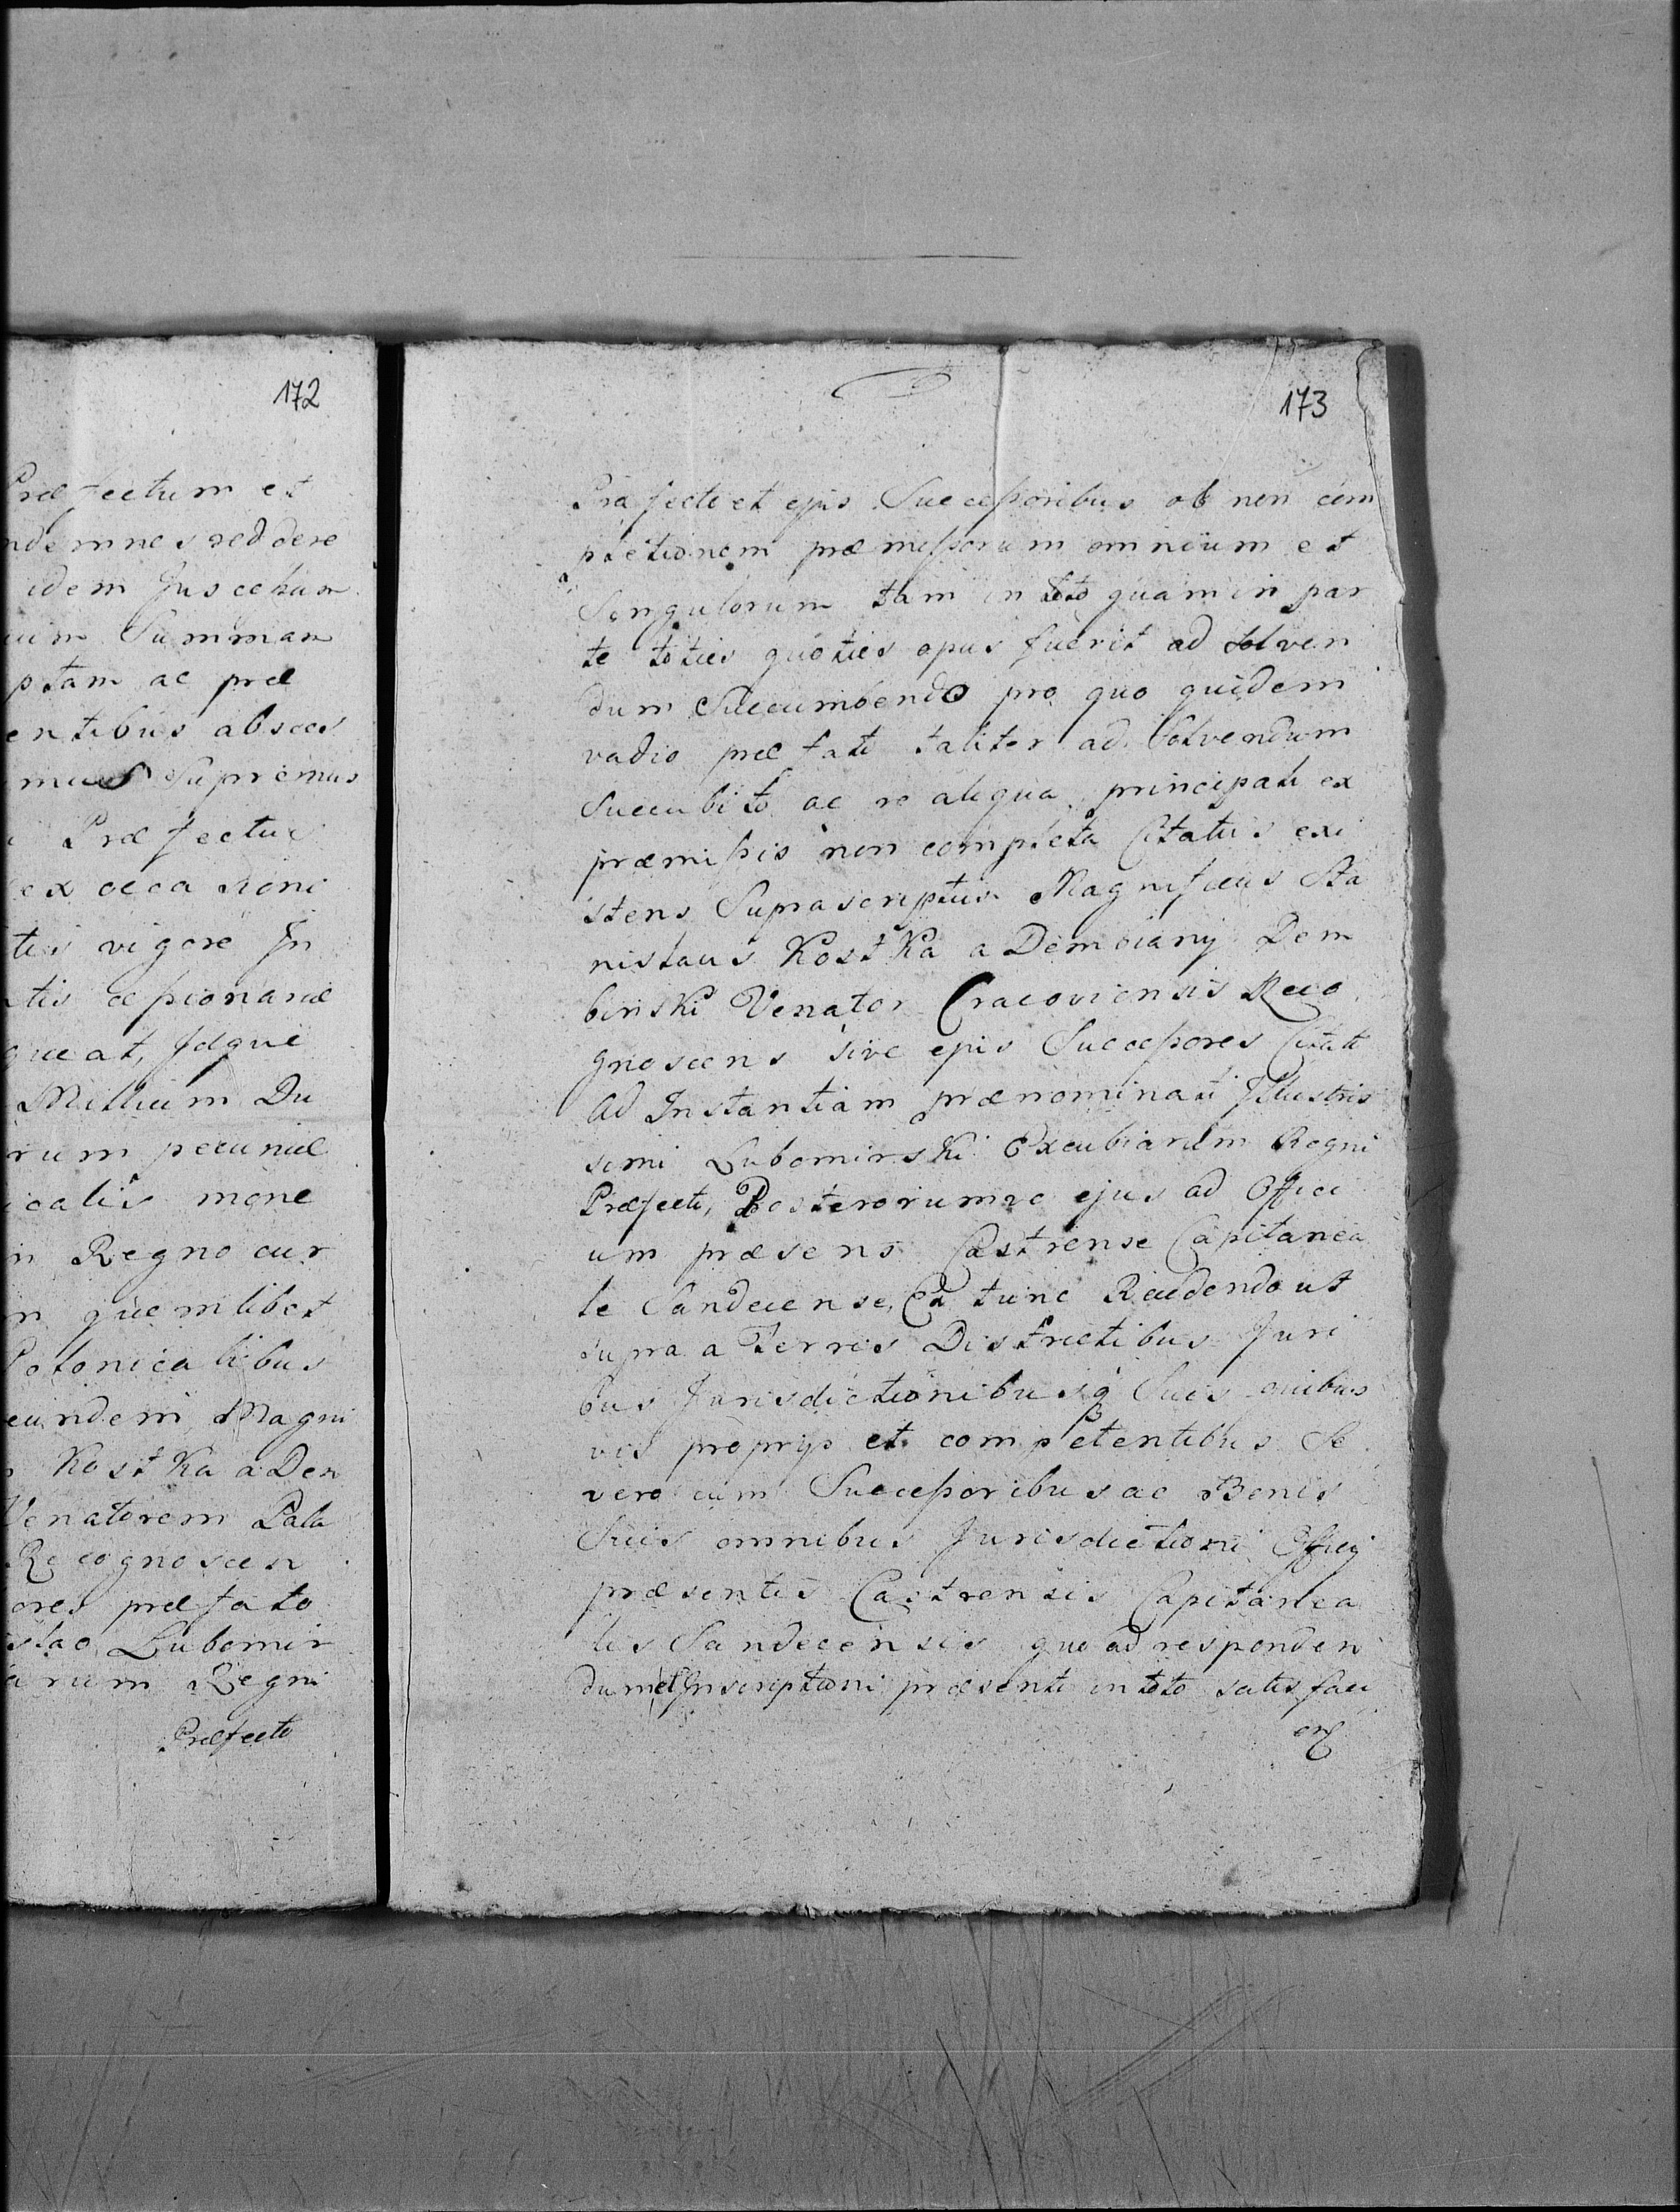 172
Præfectum et
ndemnes reddere
idem Jus cessum
uim Summam
ptam ac præ
entibus absces
mus Supremus
i Præfectus
ex occa sioni
tis vigore In
tis cessionariæ
queat, Idque
Millium Du
rum pecuniæ
icalis mone
n Regno cur
n quemlibet
Polonicalibus
eundem Magni
Kostka a Dem
Venatorem Pala
Recognoscen
ores præfato
islao Lubomir
arum Regni
Præfecto
173
Præfecto et ejus Successoribus ob non com
pletionem præmissorum omnium et
Singulorum tam in toto quam in par
te toties quoties opus fuerit ad Solven
dum Succumbendo pro quo quidem
vadio præfato taliter ad Solvendum
Succubito ac re aliqua principali ex
præmissis non completa Citatus exi
stens Suprascriptus Magnificus Sta
nislaus Kostka a Dembiany Dem
binski Venator Cracoviensis Reco
gnoscens sive ejus Successores Citati
Ad Instantiam prænominati Illustris
simi Lubomirski Excubiarum Regni
Præfecti, Posterorumve ejus ad Offici
um præsens Castrense Capitanea
le Sandecense, Ex tunc Recedendo ut
supra a Terris Districtibus Juri
bus Jurisdictionibusq Suis quibus
vis proprijs et competentibus Se
vero cum Successoribus ac Bonis
Suis omnibus Jurisdictioni Officij
præsentis Castrensis Capitanea
lis Sandecensis quo ad responden
dum et Inscriptioni præsenti in toto satisfaci